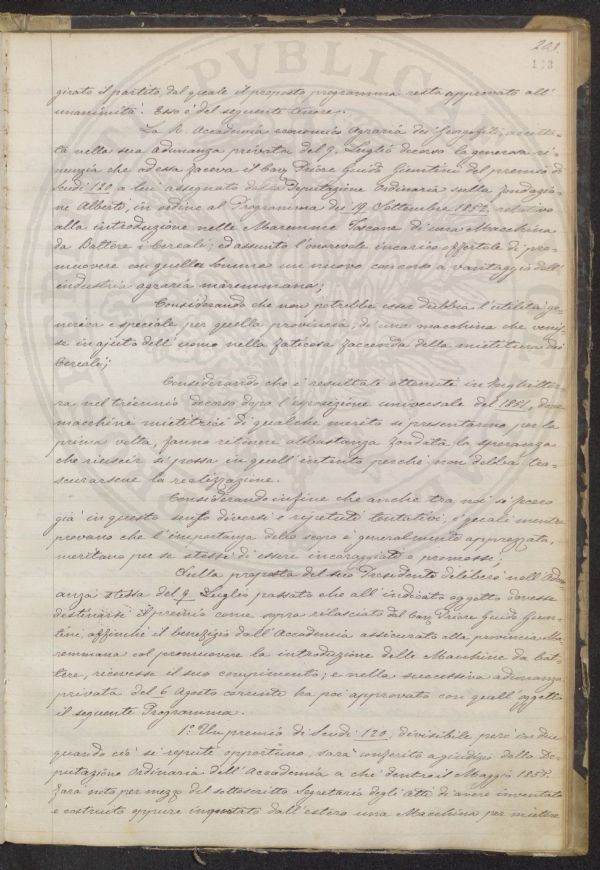 201.
193
girato il partito, dal quale il proposto programma resta approvato all'
unanimità. Esso è del seguente tenore.
La R. Accademia economico Agraria dei Georgofili, accetta-
ta nella sua Adunanza privata del 9. Luglio decorso la generosa ri-
nunzia che ad essa faceva il Cav. Priore Guido Giuntini del premio di
Scudi 120 a lui assegnato dalla Deputazione Ordinaria sulla fondazio-
ne Alberti, in ordine al Programma del 19 Settembre 1852, relativo
alla introduzione nelle Maremme Toscane di una Macchina
da Battere i Cereali; ed assunto l'onorevole incarico offertole di pro-
muovere con quella somma un nuovo concorso a vantaggio dell'
industria agraria maremmana;
Considerando che non potrebbe esser dubbia l'utilità ge-
nerica e speciale per quella provincia, di una macchina che venis-
se in ajuto dell'uomo nella faticosa faccenda della mietitura dei
Cereali;
Considerando che i resultati ottenuti in Inghilter-
ra nel triennio decorso dopo l'esposizione universale del 1851, dove
macchine mietitrici di qualche merito si presentarono per la
prima volta, fanno ritenere abbastanza fondata la speranza
che riuscir si possa in quell'intento perchè non debba tra-
scurarsene la realizzazione.
Considerando infine che anche tra noi si fecero
già in questo senso diversi e ripetuti tentativi, i quali mentre
provano che l'importanza dello scopo è generalmente apprezzata,
meritano per se stessi di essere incoraggiati e promossi;
Sulla proposta del suo Presidente deliberò nell'Adu-
nanza stessa del 9. Luglio passato che all'indicato oggetto dovesse
destinarsi il premio come sopra rilasciato dal Cav. Priore Guido Giun-
tini, affinchè il benefizio dall'Accademia assicurato alla provincia Ma-
remmana col promuovere la introduzione delle Macchine da bat-
tere, ricevesse il suo compimento; e nella successiva adunanza
privata del 6 Agosto corrente ha poi approvato con quell'oggetto
il seguente Programma.
1.° Un premio di Scudi 120, divisibile però in due
quando ciò si reputi opportuno, sarà conferito a giudizio della De-
putazione Ordinaria dell'Accademia a chi dentro il Maggio 1858.
farà noto per mezzo del sottoscritto Segretario degli Atti di avere inventata
e costruita oppure importato dall'estero una Macchina per mietere